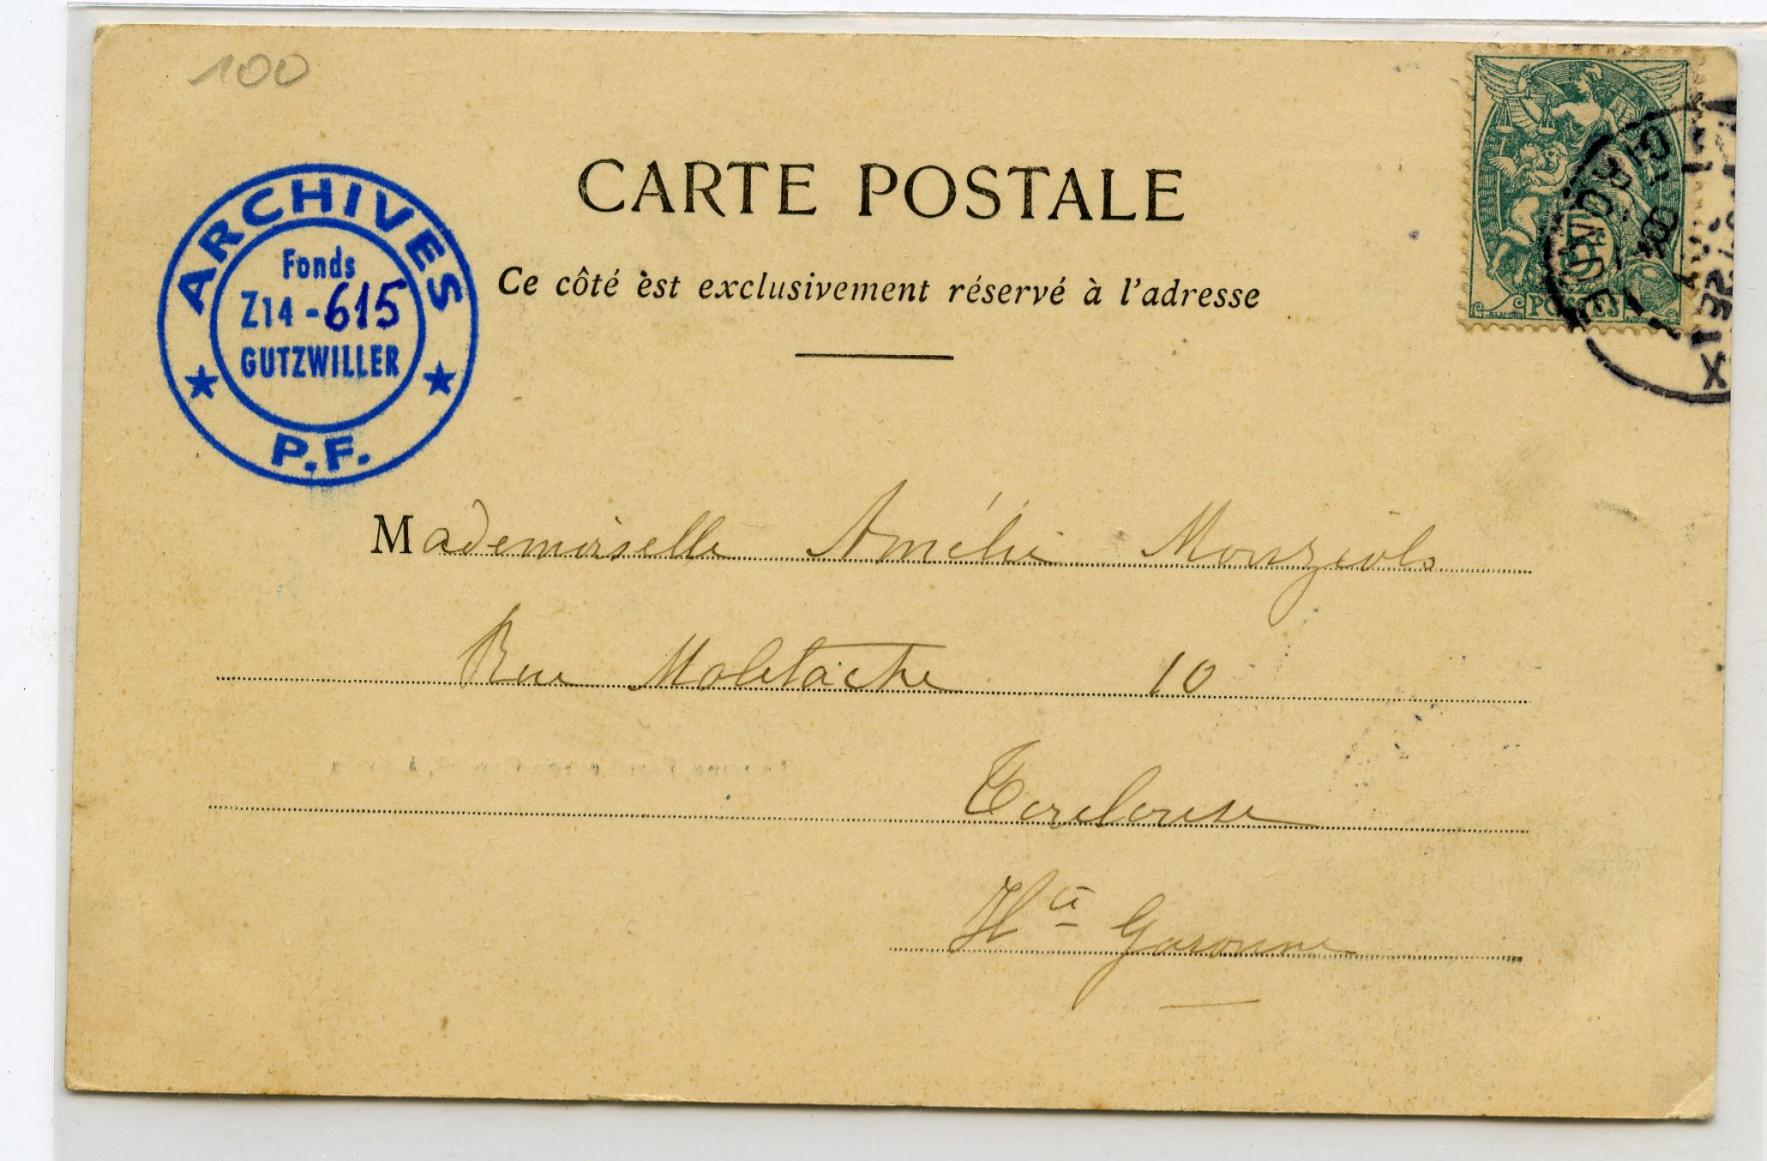 100
CARTE POSTALE
Ce côté est exclusivement réservé à l'adresse
ARCHIVES
Fonds
Z14-615
GUTZWILLER
P.F.
Mademoiselle Amélie Monziols
Rue Maletache 10
Toulouse
Hte Garonne
5
POSTES